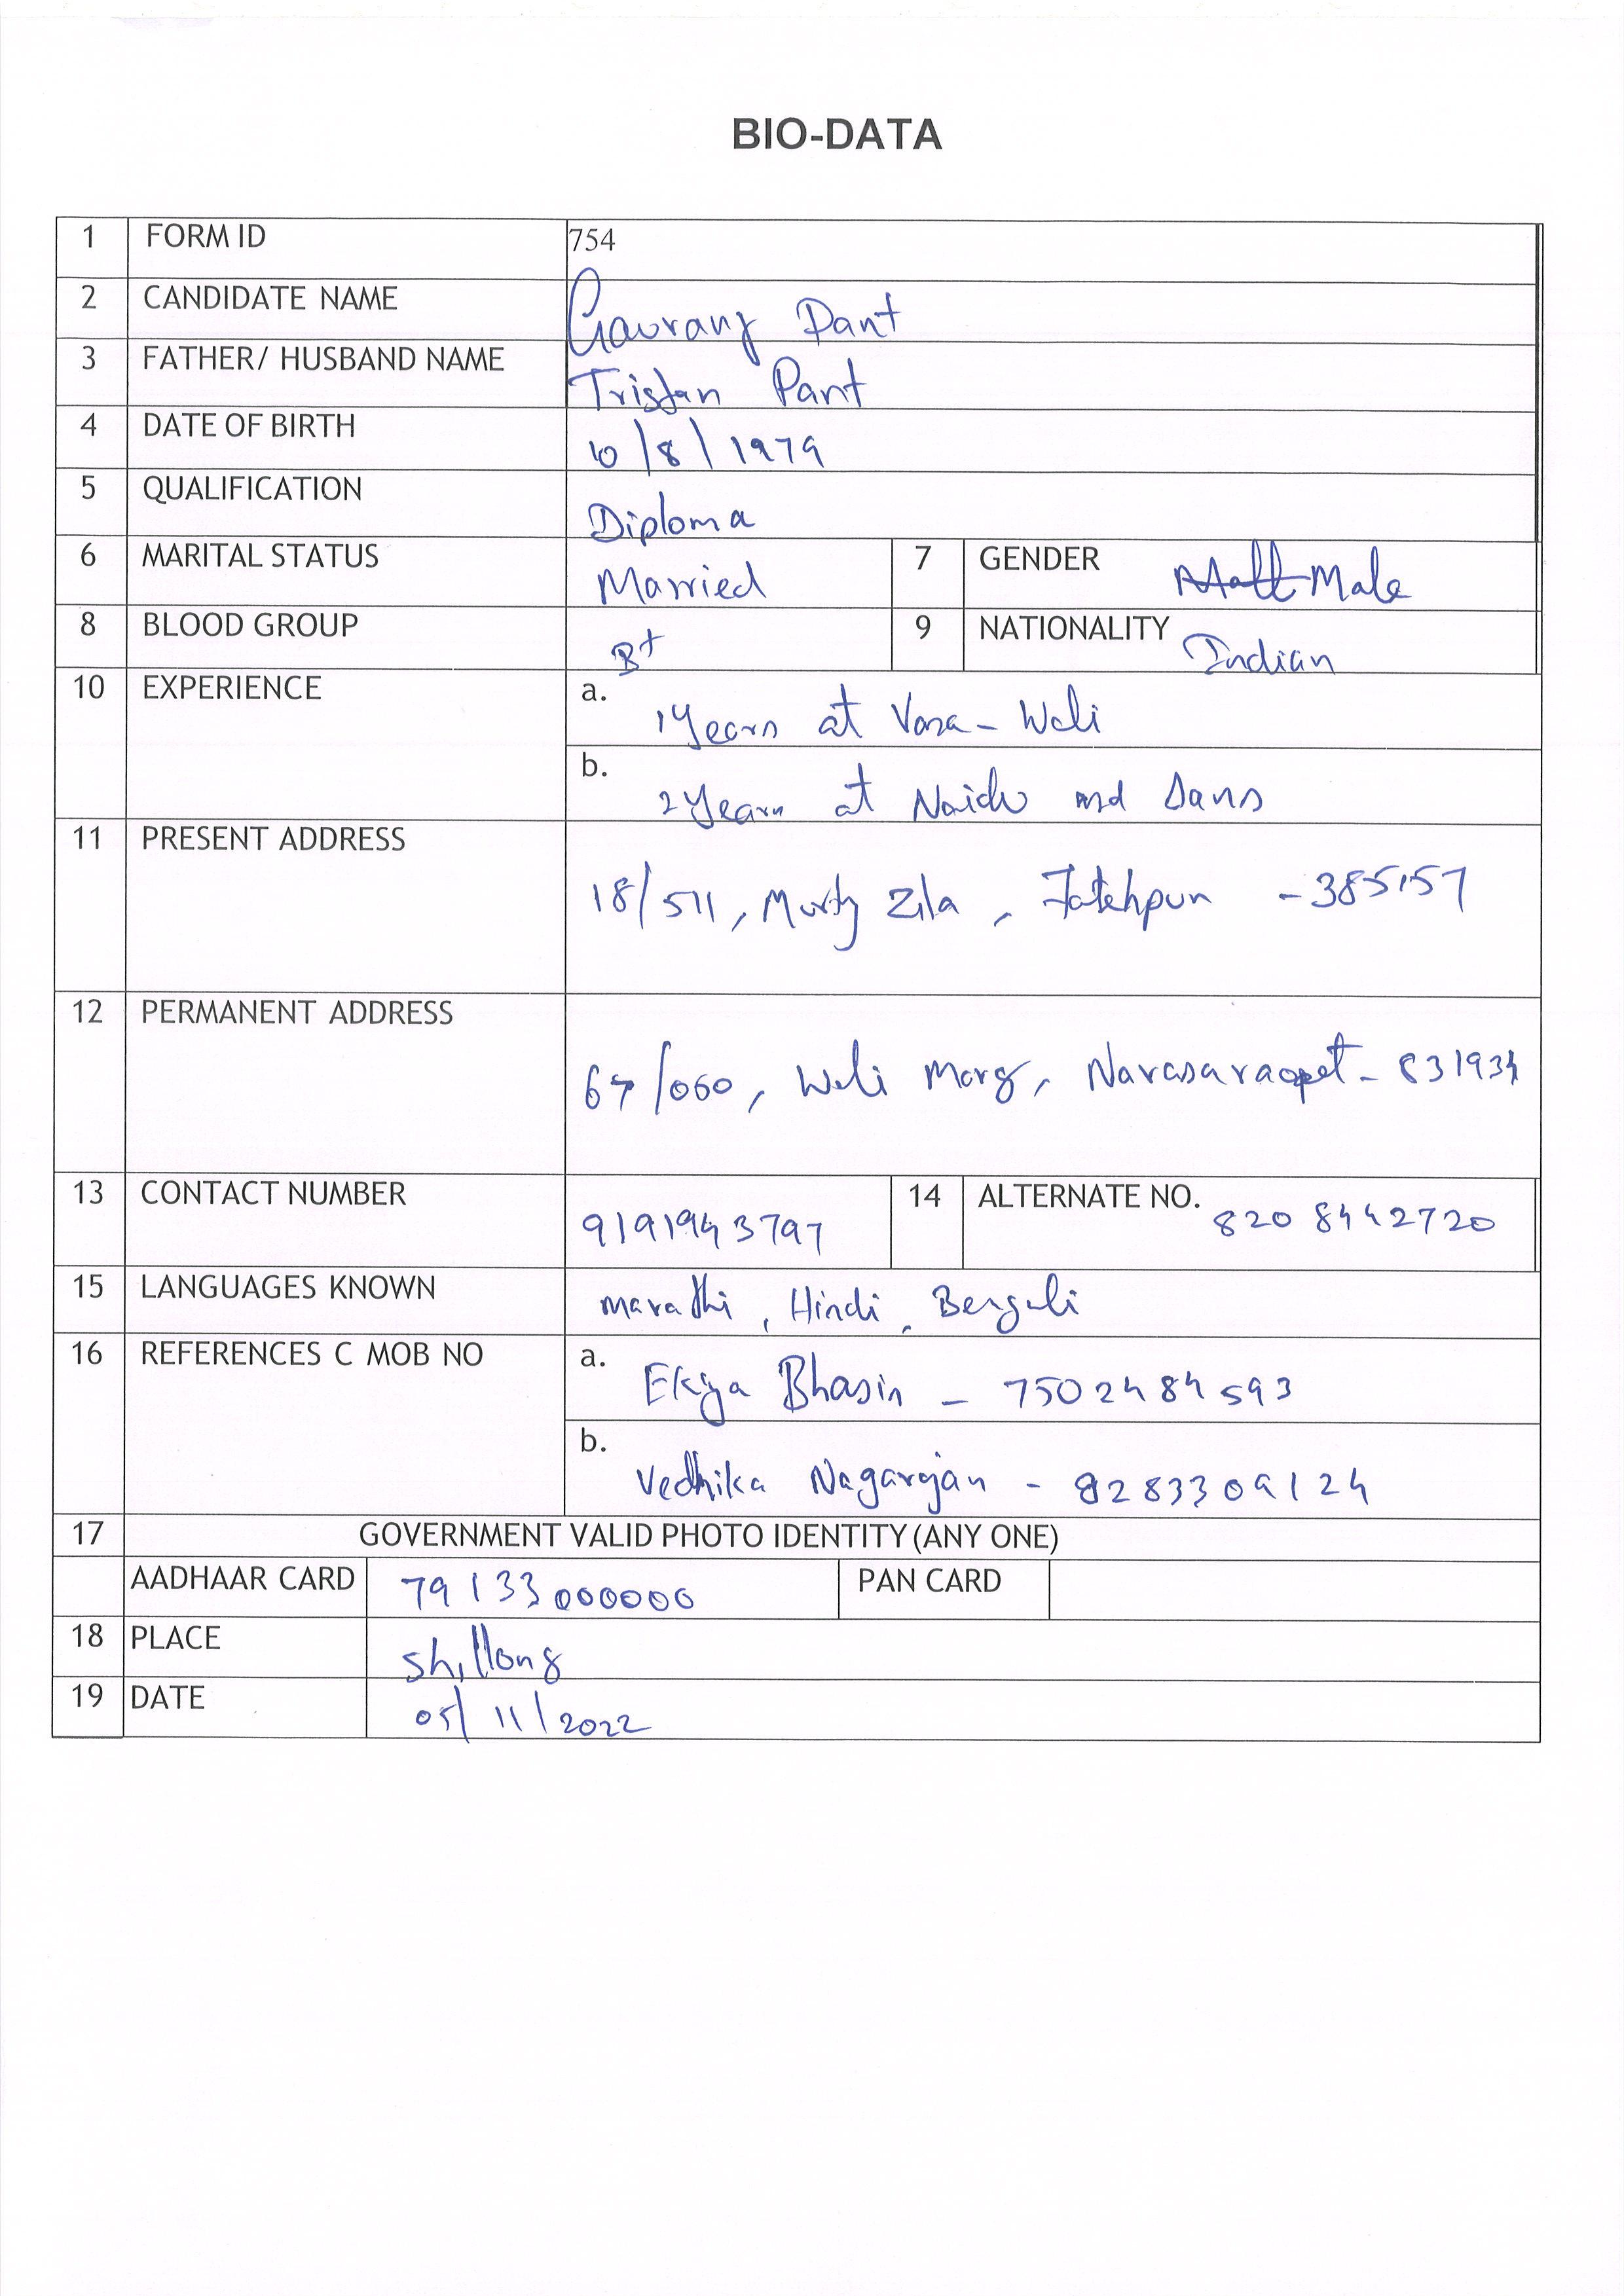 BIO-DATA
1 FORM ID 754
2 CANDIDATE NAME Gaurang Pant
3 FATHER/ HUSBAND NAME Tristan Pant
4 DATE OF BIRTH 10/8/1979
5 QUALIFICATION Diploma
6 MARITAL STATUS Married 7 GENDER Male
8 BLOOD GROUP B+ 9 NATIONALITY Indian
10 EXPERIENCE a. 1 Years at Vora - Wali
b. 2 Years at Naidu and Sans
11 PRESENT ADDRESS
18/511, Murty Zila, Fatehpur - 385157
12 PERMANENT ADDRESS
67/060, Wali Marg, Narasaraopet - 831934
13 CONTACT NUMBER 9191943797 14 ALTERNATE NO. 8208442720
15 LANGUAGES KNOWN Marathi, Hindi, Bengali
16 REFERENCES C MOB NO a. Ekiya Bhasin - 7502484593
b. Vedhika Nagarajan - 8283309124
17 GOVERNMENT VALID PHOTO IDENTITY (ANY ONE)
AADHAAR CARD 79133000000 PAN CARD
18 PLACE Shillong
19 DATE 05/11/2022